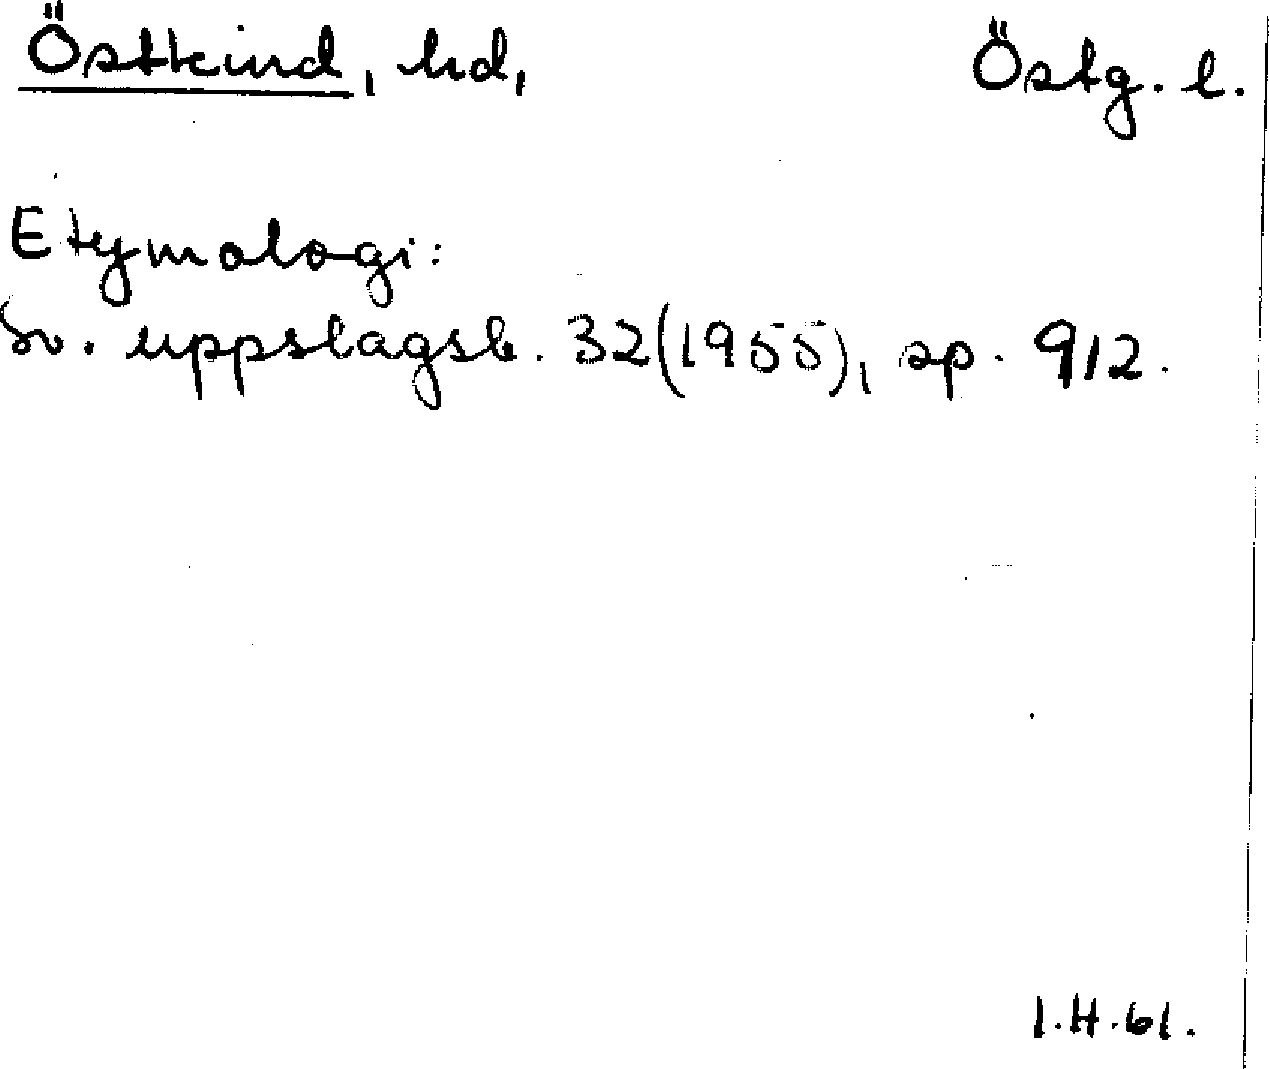 Östkind, hd, Östg. l.
Etymologi:
Sv. uppslagsb. 32(1955), sp. 912.
I.H.61.